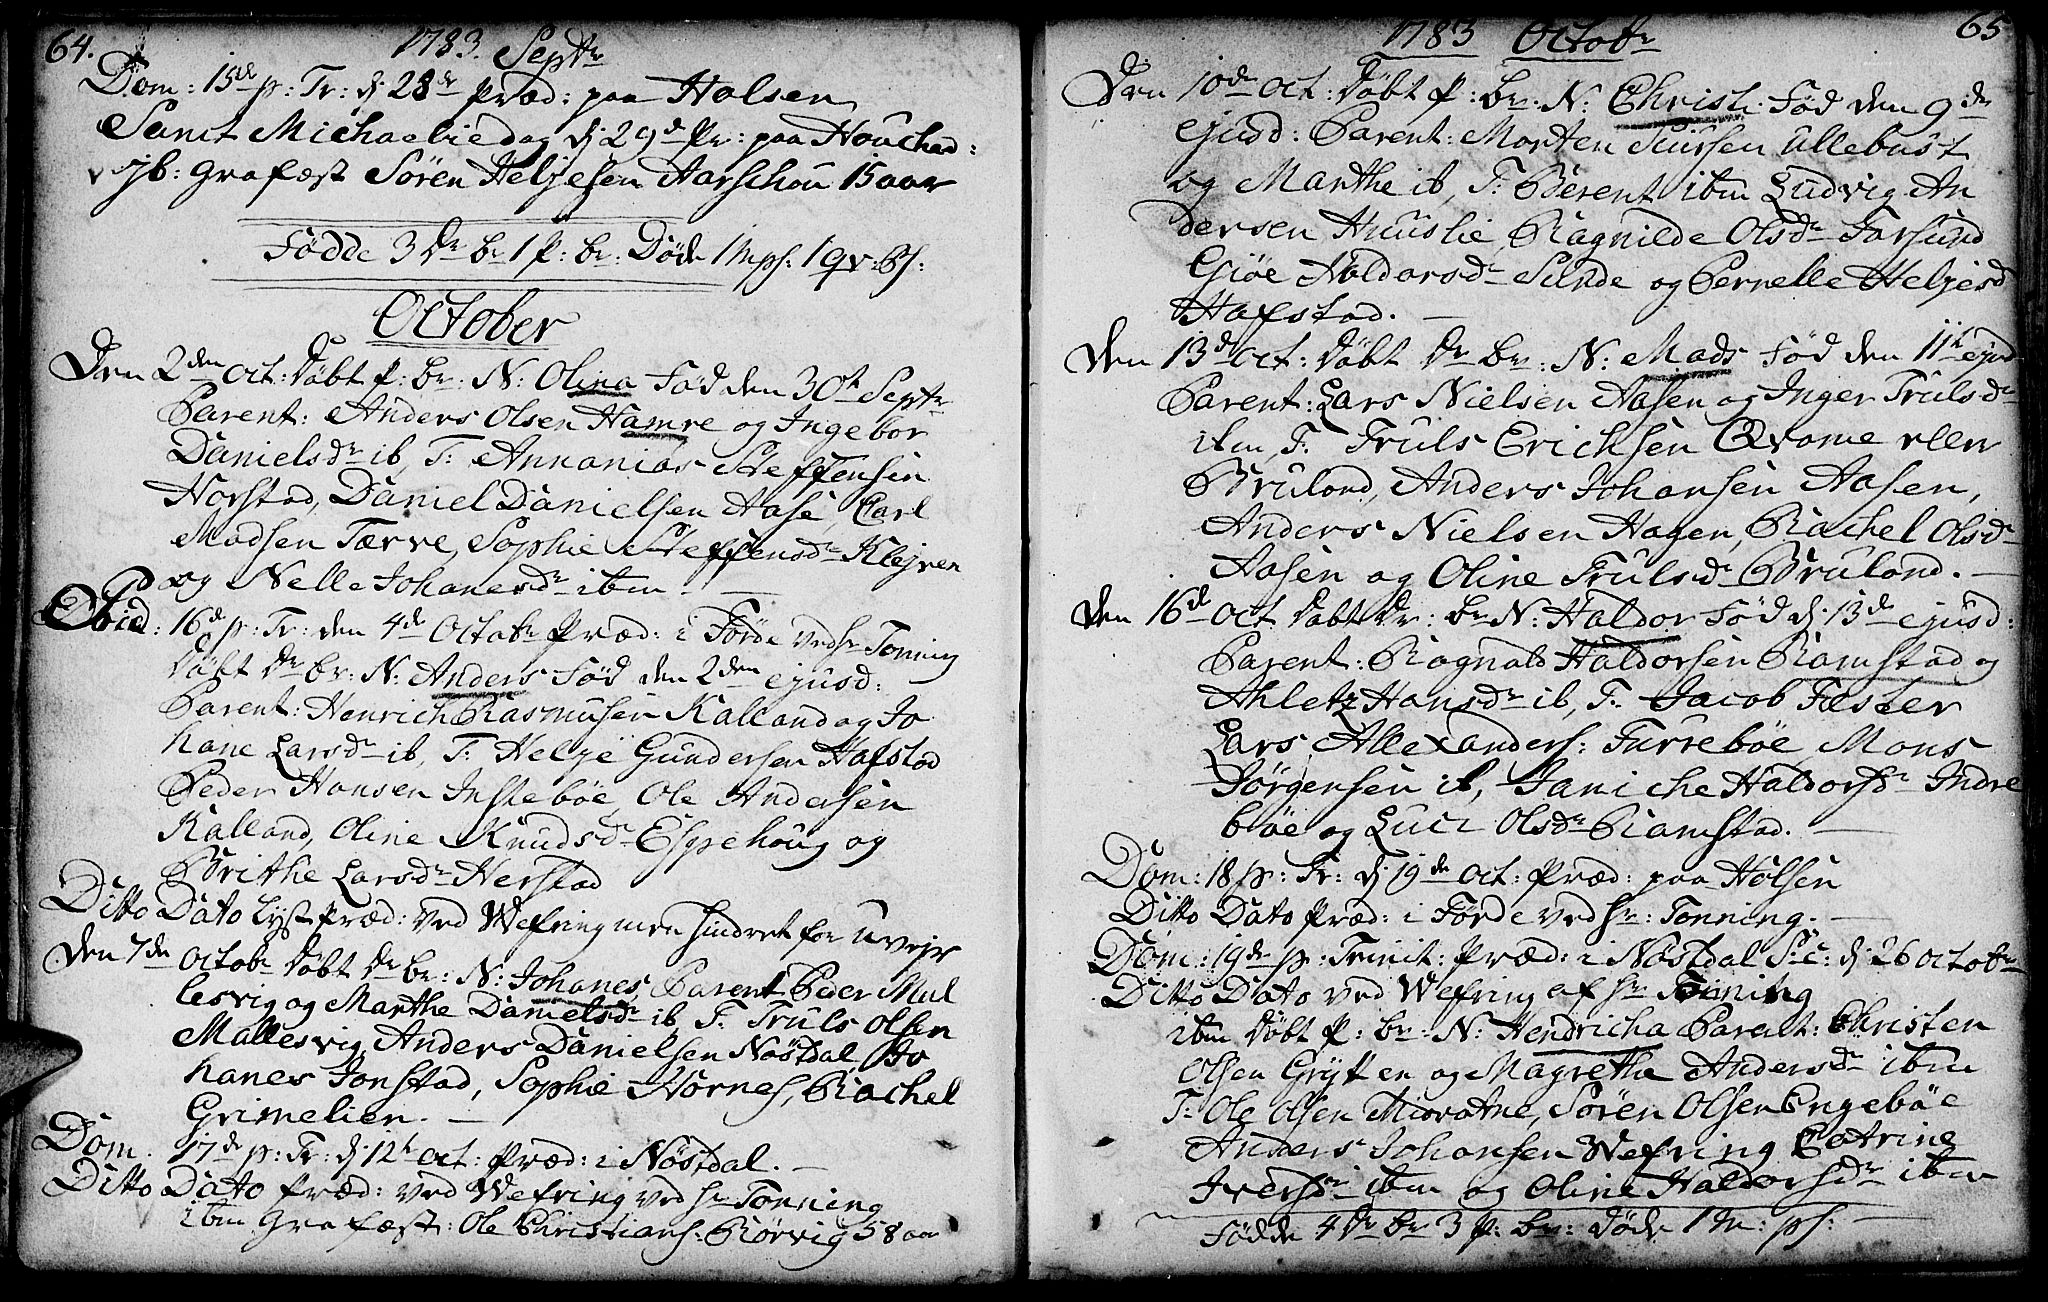 64.
1783. Septr
Dom: 15de p: Tr: d: 28de Præd: paa Holsen
Sanct Michaelie dag d: 29d Pr: paa Houched:
jb: Grafæst Sören Heljesen Aarschou 15 aar
Födde 3 Dr br 1 P: br: Döde 1 mps: 1 qv: Ps:
October
Den 2den Oct: Döbt P: br: N: Olina Föd den 30t Septr
Parent: Anders Olsen Hamre og Ingebor
Danielsdr ib, T: Annanias Steffensen
Norstad, Daniel Danielsen Aase, Carl
Madsen Tærve, Sophie Steffensdr Klejven
og Nelle Johanesdr ibm —
16d p: Tr: den 4de Octobr Præd: i Förde ved Hr Tonning
Döbt Dr br: N: Anders Föd den 2den ejusd:
Parent: Henrich Rasmusen Kalland og Jo
hane Larsdr ib, T: Helje Gundersen Hafstad
Peder Hansen Insteböe, Ole Andersen
Kalland, Oline Knudsdr Espehoug og
Brithe Larsdr Herstad
Ditto Dato Lyst Præd: ved Wefring men hindret for uvejr
Den 7de Octobr Döbt Dr br: N: Johanes, Parent Peder Mul
lesvig og Marthe Danielsdr ib, T: Truls Olsen
Mallesvig, Anders Danielsen Nöstdal, Jo
hanes Jonstad, Sophie Hornes, Rachel
Grimelien. —
Dom: 17de p: Tr: d: 12t Oct: Præd: i Nöstdal. —
Ditto Dato Præd: ved Wefring ved Hr Tonning
ibm Grafæst: Ole Christians: Rörvig 58 aar
65
1783 Octobr
Den 10de Oct: Döbt P: br: N: Christi: Föd den 9de
ejusd: Parent: Morten Siursen Ullebust
og Marthe ib, T: Berent ibm Ludvig An
dersen Huuslie, Ragnilde Olsdr Farsund
Giöe Haldorsdr Sunde og Pernelle Heljesd
Hafstad. —
Den 13d Oct: Döbt Dr br: N: Mads Föd den 11t ejusd
Parent: Lars Nielsen Aasen og Inger Trulsdr
ibm, T: Truls Erichsen Qvame eller
Bruland, Anders Johansen Aasen,
Anders Nielsen Hagen, Rachel Olsdr
Aasen og Oline Trulsdr Bruland. —
Den 16d Oct Döbt Dr: br N: Haldor Föd d: 13de ejusd:
Parent: Ragnald Haldorsen Ramstad og
Ahletz Hansdr ib, T: Jacob Fester
Lars Allexanders: Furreböe, Mons
Jörgensen ib, Janiche Haldorsdr Indre
böe og Luci Olsdr Ramstad. —
Dom: 18 p: Tr: d: 19de Oct: Præd: paa Holsen
Ditto Dato Præd: i Förde ved Hr: Tonning. —
Dom: 19de p: Trinit: Præd: i Nöstdal S: C: d: 26 Octobr
Ditto Dato ved Wefring af Hr Toning
ibm Döbt P: br: N: Hendricha Parent: Christen
Olsen Grytten og Magretha Andersdr ibm
T: Ole Olsen Mioratne, Sören Olsen Engeböe
Anders Johansen Wefring Catrine
Iversdr ibm og Oline Haldorsdr ibm
Födde 4 Dr br 3 P: br: Döde 1 m: ps: —